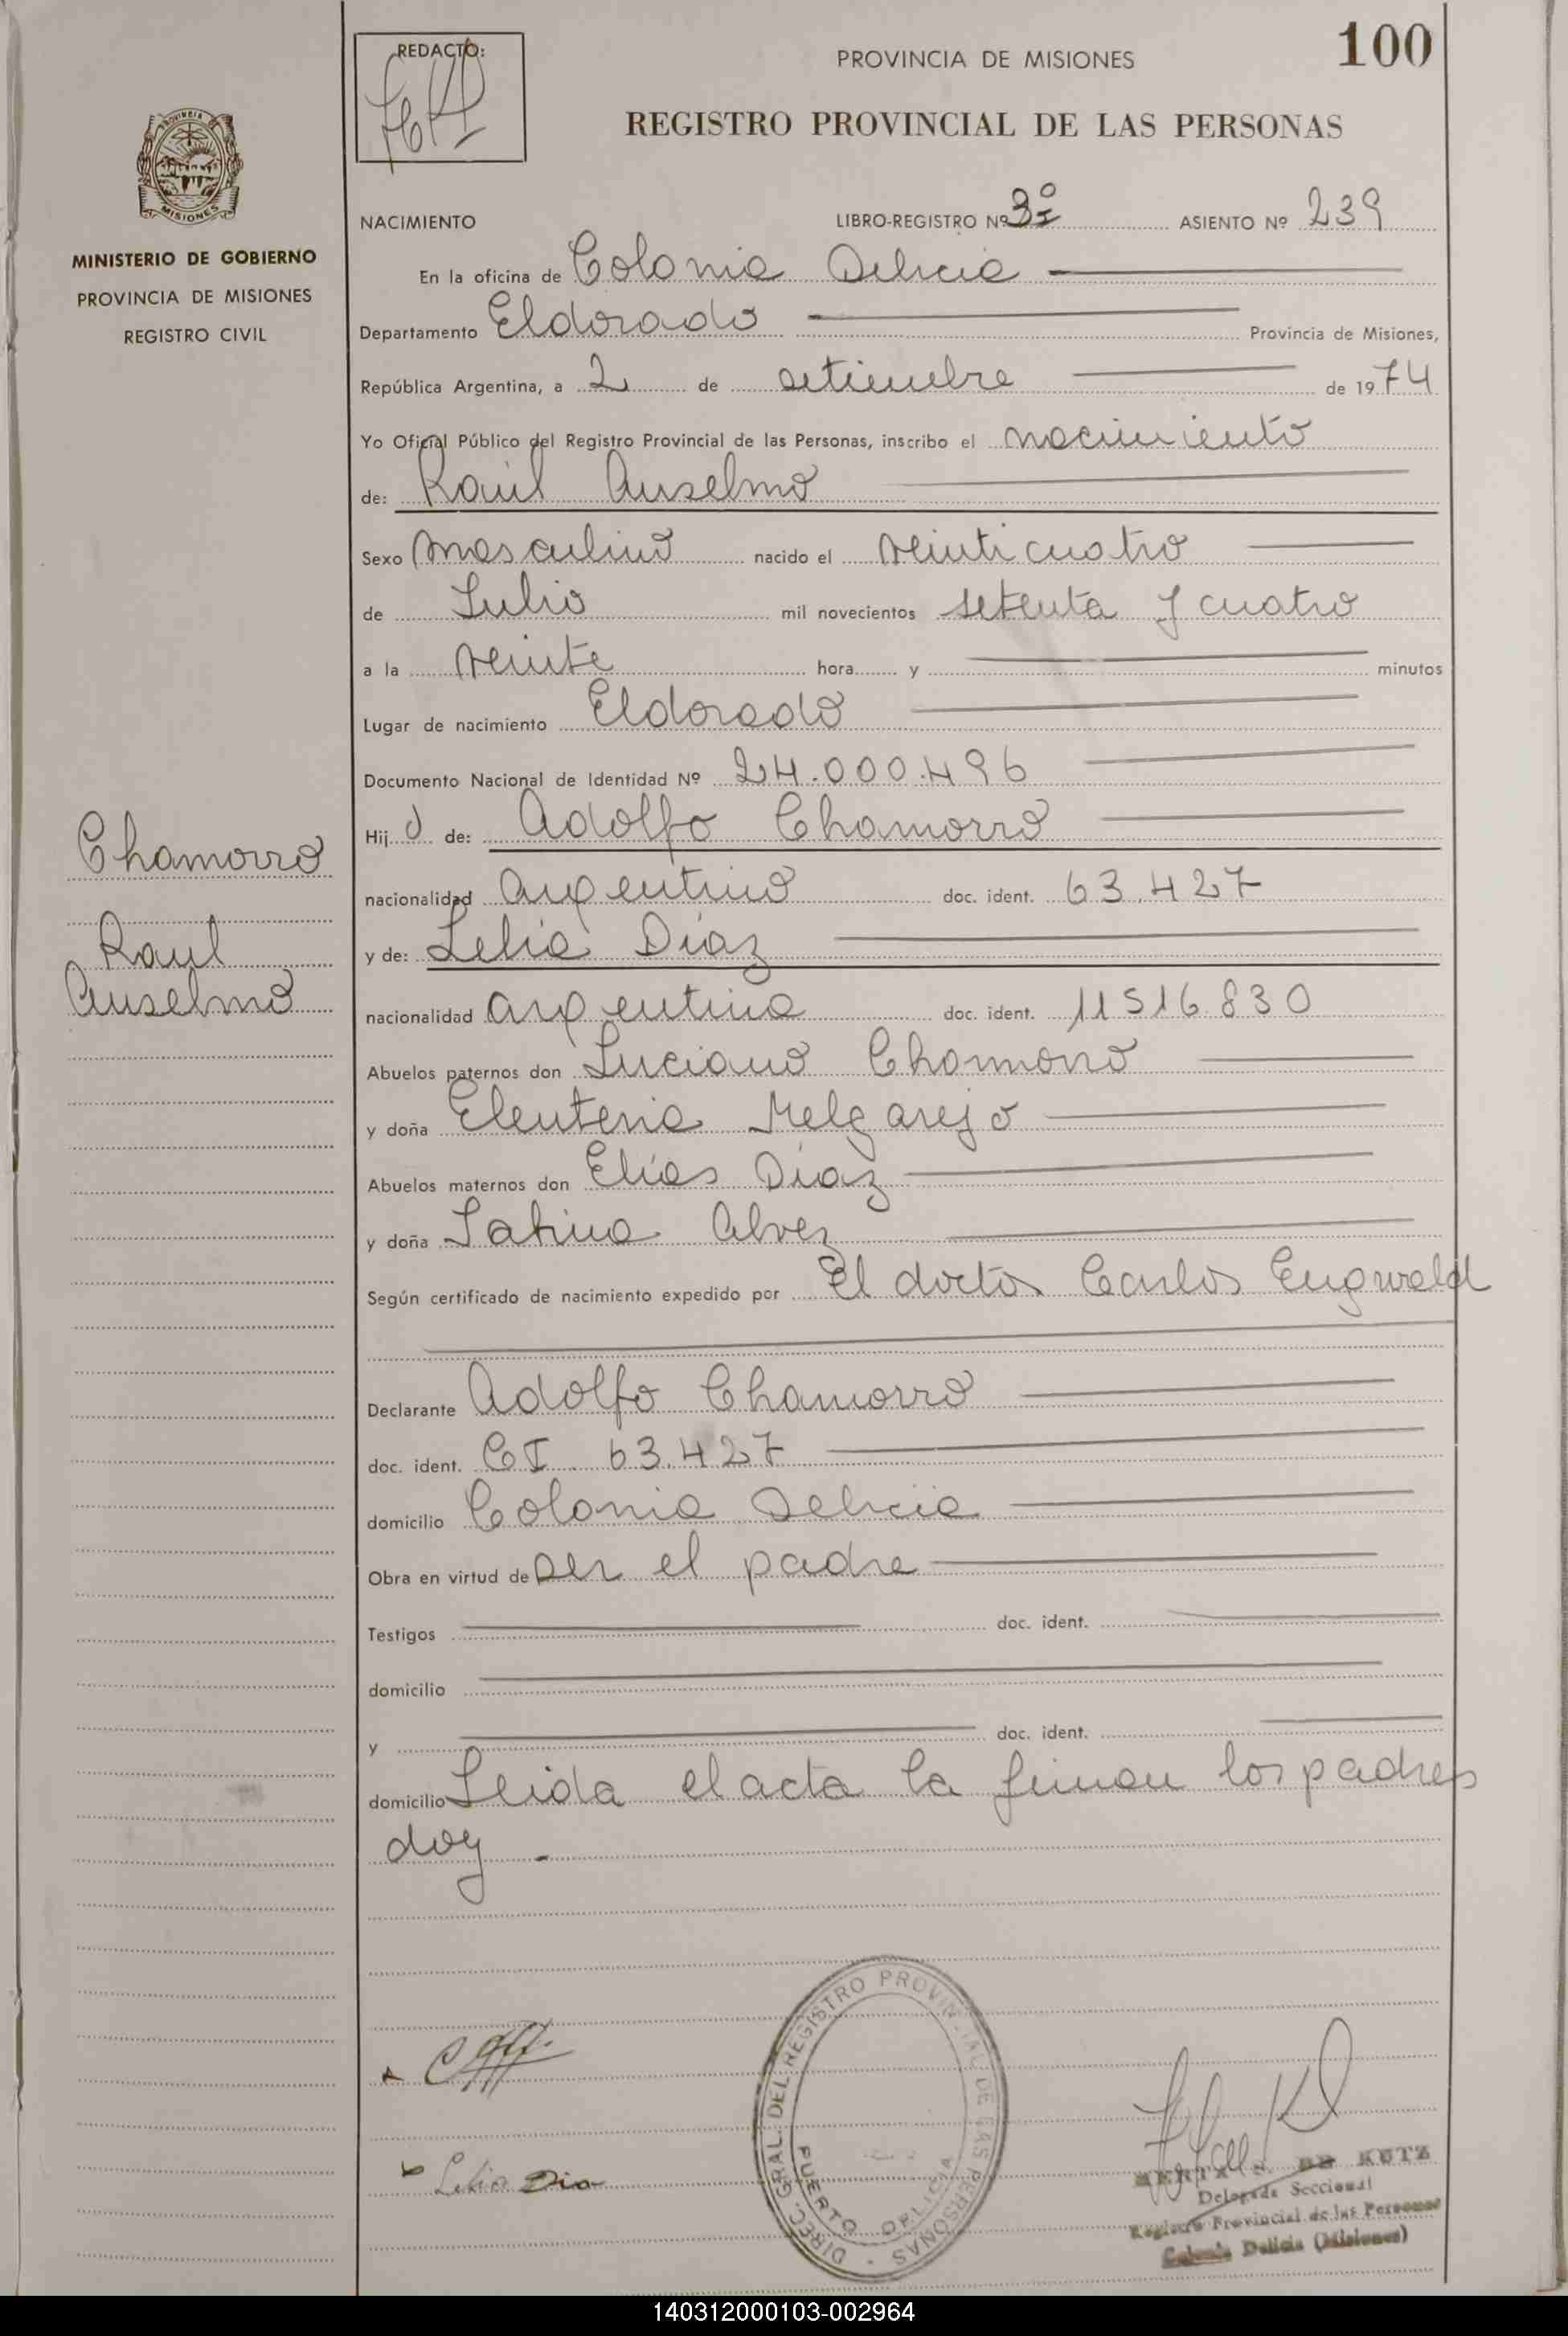 REDACTO:
PROVINCIA DE MISIONES
100
REGISTRO PROVINCIAL DE LAS PERSONAS
PROVINCIA DE
MISIONES
MINISTERIO DE GOBIERNO
PROVINCIA DE MISIONES
REGISTRO CIVIL
NACIMIENTO LIBRO-REGISTRO Nº 3º I ASIENTO Nº 239
En la oficina de Colonia Delicia
Departamento Eldorado Provincia de Misiones,
República Argentina, a 2 de setiembre de 1974
Yo Oficial Público del Registro Provincial de las Personas, inscribo el nacimiento
de: Raúl Anselmo
Sexo masculino nacido el veinticuatro
de Julio mil novecientos setenta y cuatro
a la veinte hora y minutos
Lugar de nacimiento Eldorado
Documento Nacional de Identidad Nº 24.000.496
Hij o de: Adolfo Chamorro
Chamorro
nacionalidad argentino doc. ident. 63.427
Raul
y de: Lelia Díaz
Anselmo
nacionalidad argentina doc. ident. 11516.830
Abuelos paternos don Luciano Chamorro
y doña Eleuteria Melgarejo
Abuelos maternos don Elías Díaz
y doña Alvez
Según certificado de nacimiento expedido por El doctor Carlos Engwald
Declarante Adolfo Chamorro
doc. ident. CI. 63.427
domicilio Colonia Delicia
Obra en virtud de ser el padre
Testigos doc. ident.
domicilio
y doc. ident.
domicilio Leida el acta la firman los padres
doy .
DIREC. GRAL. DEL REGISTRO PROVINCIAL DE LAS PERSONAS
PUERTO DELICIA
Lelia Dia
DE KUTZ
Delegada Seccional
Registro Provincial de las Personas
Colonia Delicia (Misiones)
140312000103-002964